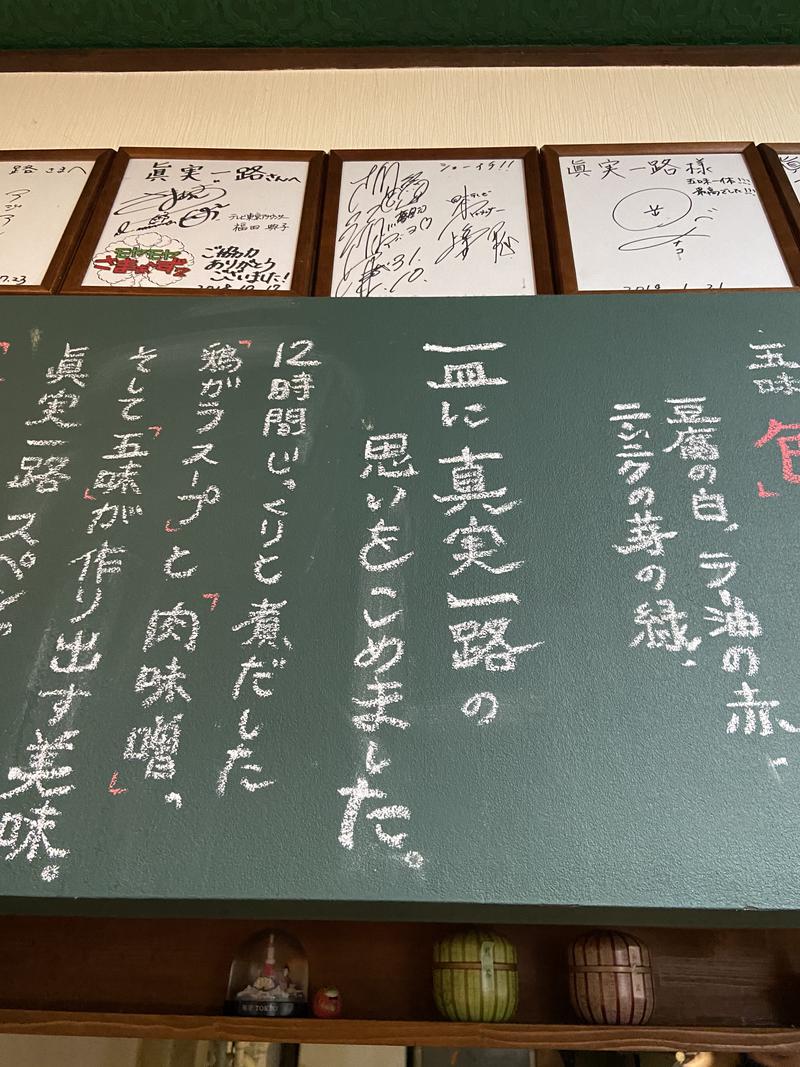 路さまへ
眞実一路さんへ
テレビ東京アナウンサー
福田典子
モヤモヤ
さまぁ~ず2
ご協力
ありがとう
ございました!
2018.10.17
眞実一路様
五味一体!!!
最高でした!!!
2019.1.31
五味
「色」
豆腐の白、ラー油の赤、
ニンニクの芽の緑、
一皿に真実一路の
思いをこめました。
12時間じっくりと煮だした
「鶏がラスープ」と「肉味噌」、
そして「五味」が作り出す美味。
眞実一路スペシ
東京 TOKYO